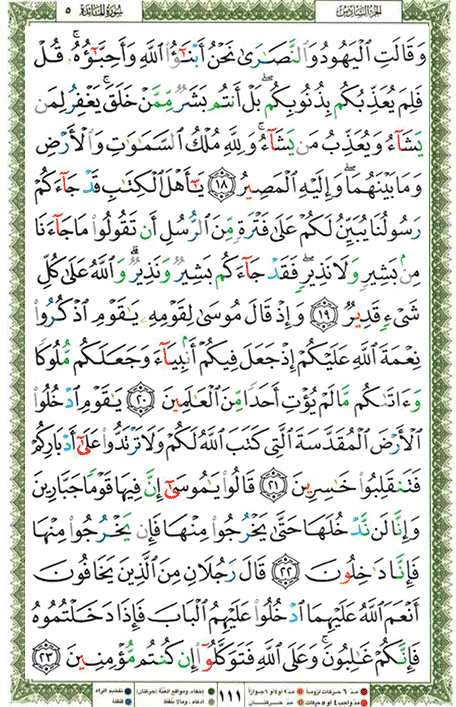 الجزء السادس سورة المائدة ٥
وَقَالَتِ الْيَهُودُ وَالنَّصَٰرَىٰ نَحْنُ أَبْنَٰٓؤُا۟ اللَّهِ وَأَحِبَّٰٓؤُهُۥ ۚ قُلْ
فَلِمَ يُعَذِّبُكُم بِذُنُوبِكُم ۖ بَلْ أَنتُم بَشَرٌ مِّمَّنْ خَلَقَ ۚ يَغْفِرُ لِمَن
يَشَآءُ وَيُعَذِّبُ مَن يَشَآءُ ۚ وَلِلَّهِ مُلْكُ السَّمَٰوَٰتِ وَالْأَرْضِ
وَمَا بَيْنَهُمَا ۖ وَإِلَيْهِ الْمَصِيرُ ١٨ يَٰٓأَهْلَ الْكِتَٰبِ قَدْ جَآءَكُمْ
رَسُولُنَا يُبَيِّنُ لَكُمْ عَلَىٰ فَتْرَةٍ مِّنَ الرُّسُلِ أَن تَقُولُوا۟ مَا جَآءَنَا
مِنۢ بَشِيرٍ وَلَا نَذِيرٍ ۖ فَقَدْ جَآءَكُم بَشِيرٌ وَنَذِيرٌ ۗ وَاللَّهُ عَلَىٰ كُلِّ
شَىْءٍ قَدِيرٌ ١٩ وَإِذْ قَالَ مُوسَىٰ لِقَوْمِهِۦ يَٰقَوْمِ اذْكُرُوا۟
نِعْمَةَ اللَّهِ عَلَيْكُمْ إِذْ جَعَلَ فِيكُمْ أَنۢبِيَآءَ وَجَعَلَكُم مُّلُوكًا
وَءَاتَىٰكُم مَّا لَمْ يُؤْتِ أَحَدًا مِّنَ الْعَٰلَمِينَ ٢٠ يَٰقَوْمِ ادْخُلُوا۟
الْأَرْضَ الْمُقَدَّسَةَ الَّتِى كَتَبَ اللَّهُ لَكُمْ وَلَا تَرْتَدُّوا۟ عَلَىٰٓ أَدْبَارِكُمْ
فَتَنقَلِبُوا۟ خَٰسِرِينَ ٢١ قَالُوا۟ يَٰمُوسَىٰٓ إِنَّ فِيهَا قَوْمًا جَبَّارِينَ
وَإِنَّا لَن نَّدْخُلَهَا حَتَّىٰ يَخْرُجُوا۟ مِنْهَا فَإِن يَخْرُجُوا۟ مِنْهَا
فَإِنَّا دَٰخِلُونَ ٢٢ قَالَ رَجُلَانِ مِنَ الَّذِينَ يَخَافُونَ
أَنْعَمَ اللَّهُ عَلَيْهِمَا ادْخُلُوا۟ عَلَيْهِمُ الْبَابَ فَإِذَا دَخَلْتُمُوهُ
فَإِنَّكُمْ غَٰلِبُونَ ۚ وَعَلَى اللَّهِ فَتَوَكَّلُوٓا۟ إِن كُنتُم مُّؤْمِنِينَ ٢٣
مد ٦ حركات لزوما مد ٢ أو ٤ أو ٦ جوازا إخفاء، ومواقع الغنة (حركتان) تفخيم الراء
مد واجب ٤ أو ٥ حركات مد حركتان ادغام، وما لا يلفظ قلقلة
١١١